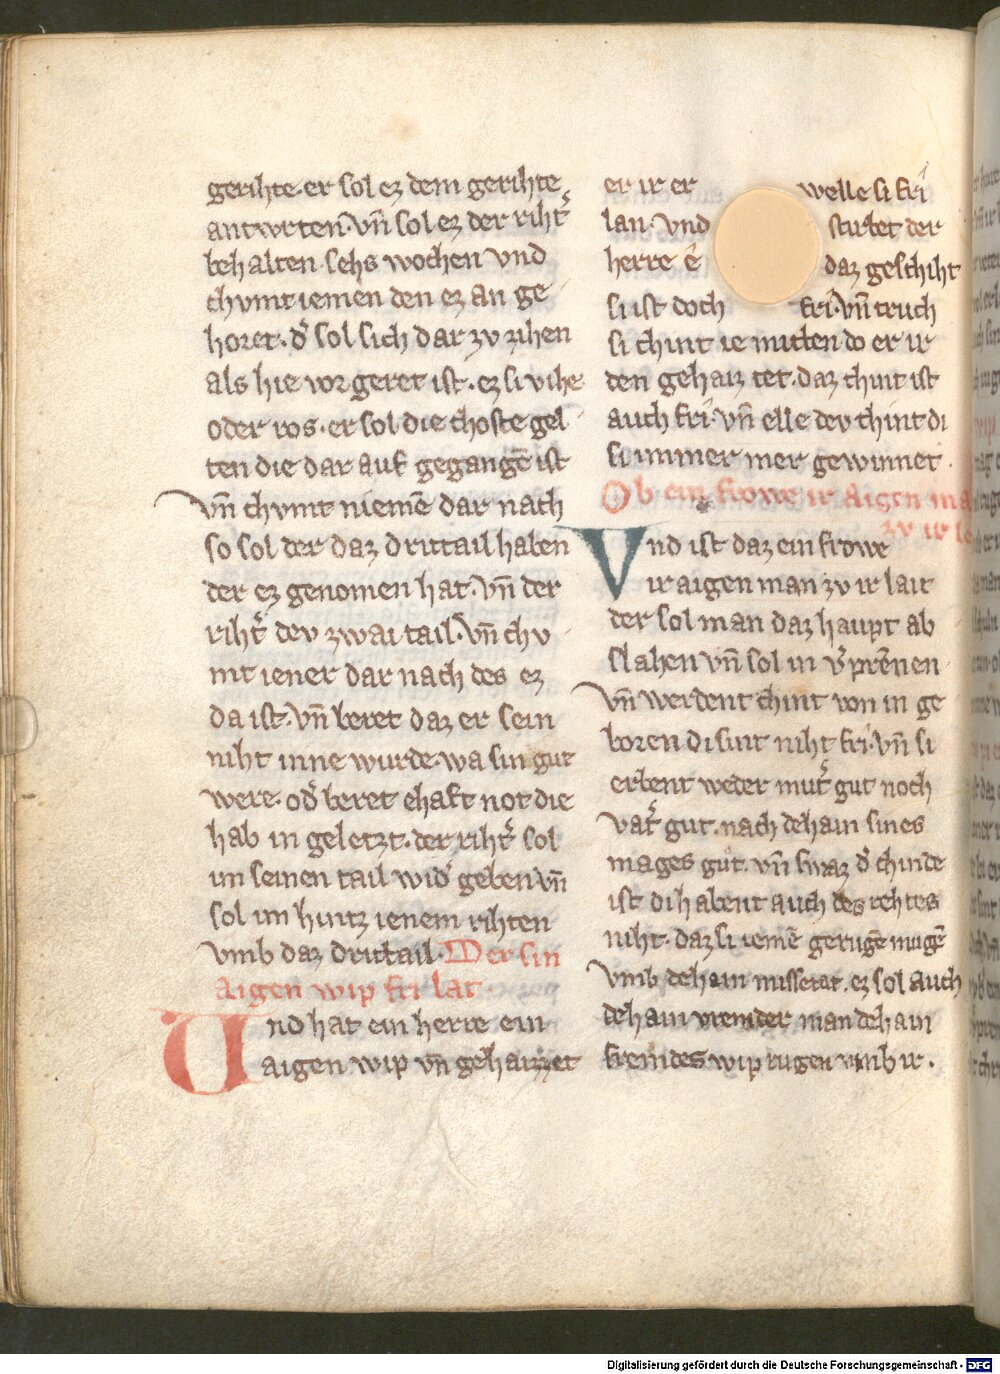 gerihte. er sol ez dem gerihte
antwrten. vn̄ sol ez der riht̉
behalten. sehs wochen vnd
chvmt iemen den ez an ge
horet. d̉ sol sich dar zv zihen
als hie vor geret ist. ez si vihe
oder ros. er sol die choste gel
ten die dar auf gegangē ist
vn̄ chvmt niemē dar nach
so sol der daz drittail haben
der ez genomen hat. vn̄ der
riht̉ dev zwai tail. vn̄ chv
mt iener dar nach des ez
da ist. vn̄ beret daz er sein
niht inne wurde. wa sin gut
were. od̉ beret ehaft not die
hab in geletzt. der riht̉ sol
im seinen tail wid̉ geben vn̄
sol im hintz ienem rihten
vmb daz drittail. Der sin
aigen wip fri lat
Vnd hat ein herre ein
aigen wip vn̄ gehaizzet
er ir er welle si fri
lan. vnd stirbet der
herre ê daz geschiht
si ist doch fri. vn̄ truch
si chint ie mitten do er ir
den gehaiz tet. daz chint ist
auch fri. vn̄ elle dev chint di
si immer mer gewinnet.
Ob ein frowe ir aigen ma
zv ir le
Vnd ist daz ein frowe
ir aigen man zv ir lait
der sol man daz haupt ab
slahen vn̄ sol in v̉prēnen
vn̄ werdent chint von in ge
boren di sint niht fri. vn̄ si
erbent weder mut̉ gut noch
vat̉ gut. nach dehain sines
mages gut. vn̄ swaz d̉ chinde
ist di habent auch des rehtes
niht. daz si iemē gerugē mugē
vmb dehain missetat. ez sol auch
dehain vremder man dehain
fremdes wip rugen vmb ir.
Digitalisierung gefördert durch die Deutsche Forschungsgemeinschaft - DFG